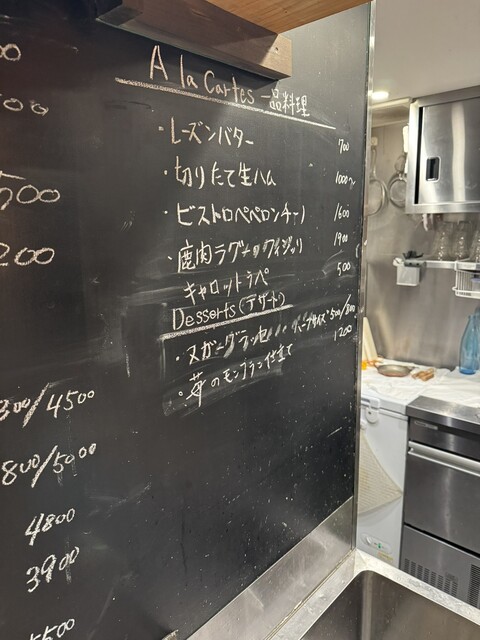 A la Cartes 一品料理
・レーズンバター 700
・切りたて生ハム 1000〜
・ビストロペペロンチーノ 1600
・鹿肉ラグーのフィジッリ 1900
キャロットラペ 500
Desserts(デザート)
・ヌガーグラッセ ハーフサイズ 500/800
・苺のモンブラン仕立て 1200
200
300/4500
800/5000
4800
3900